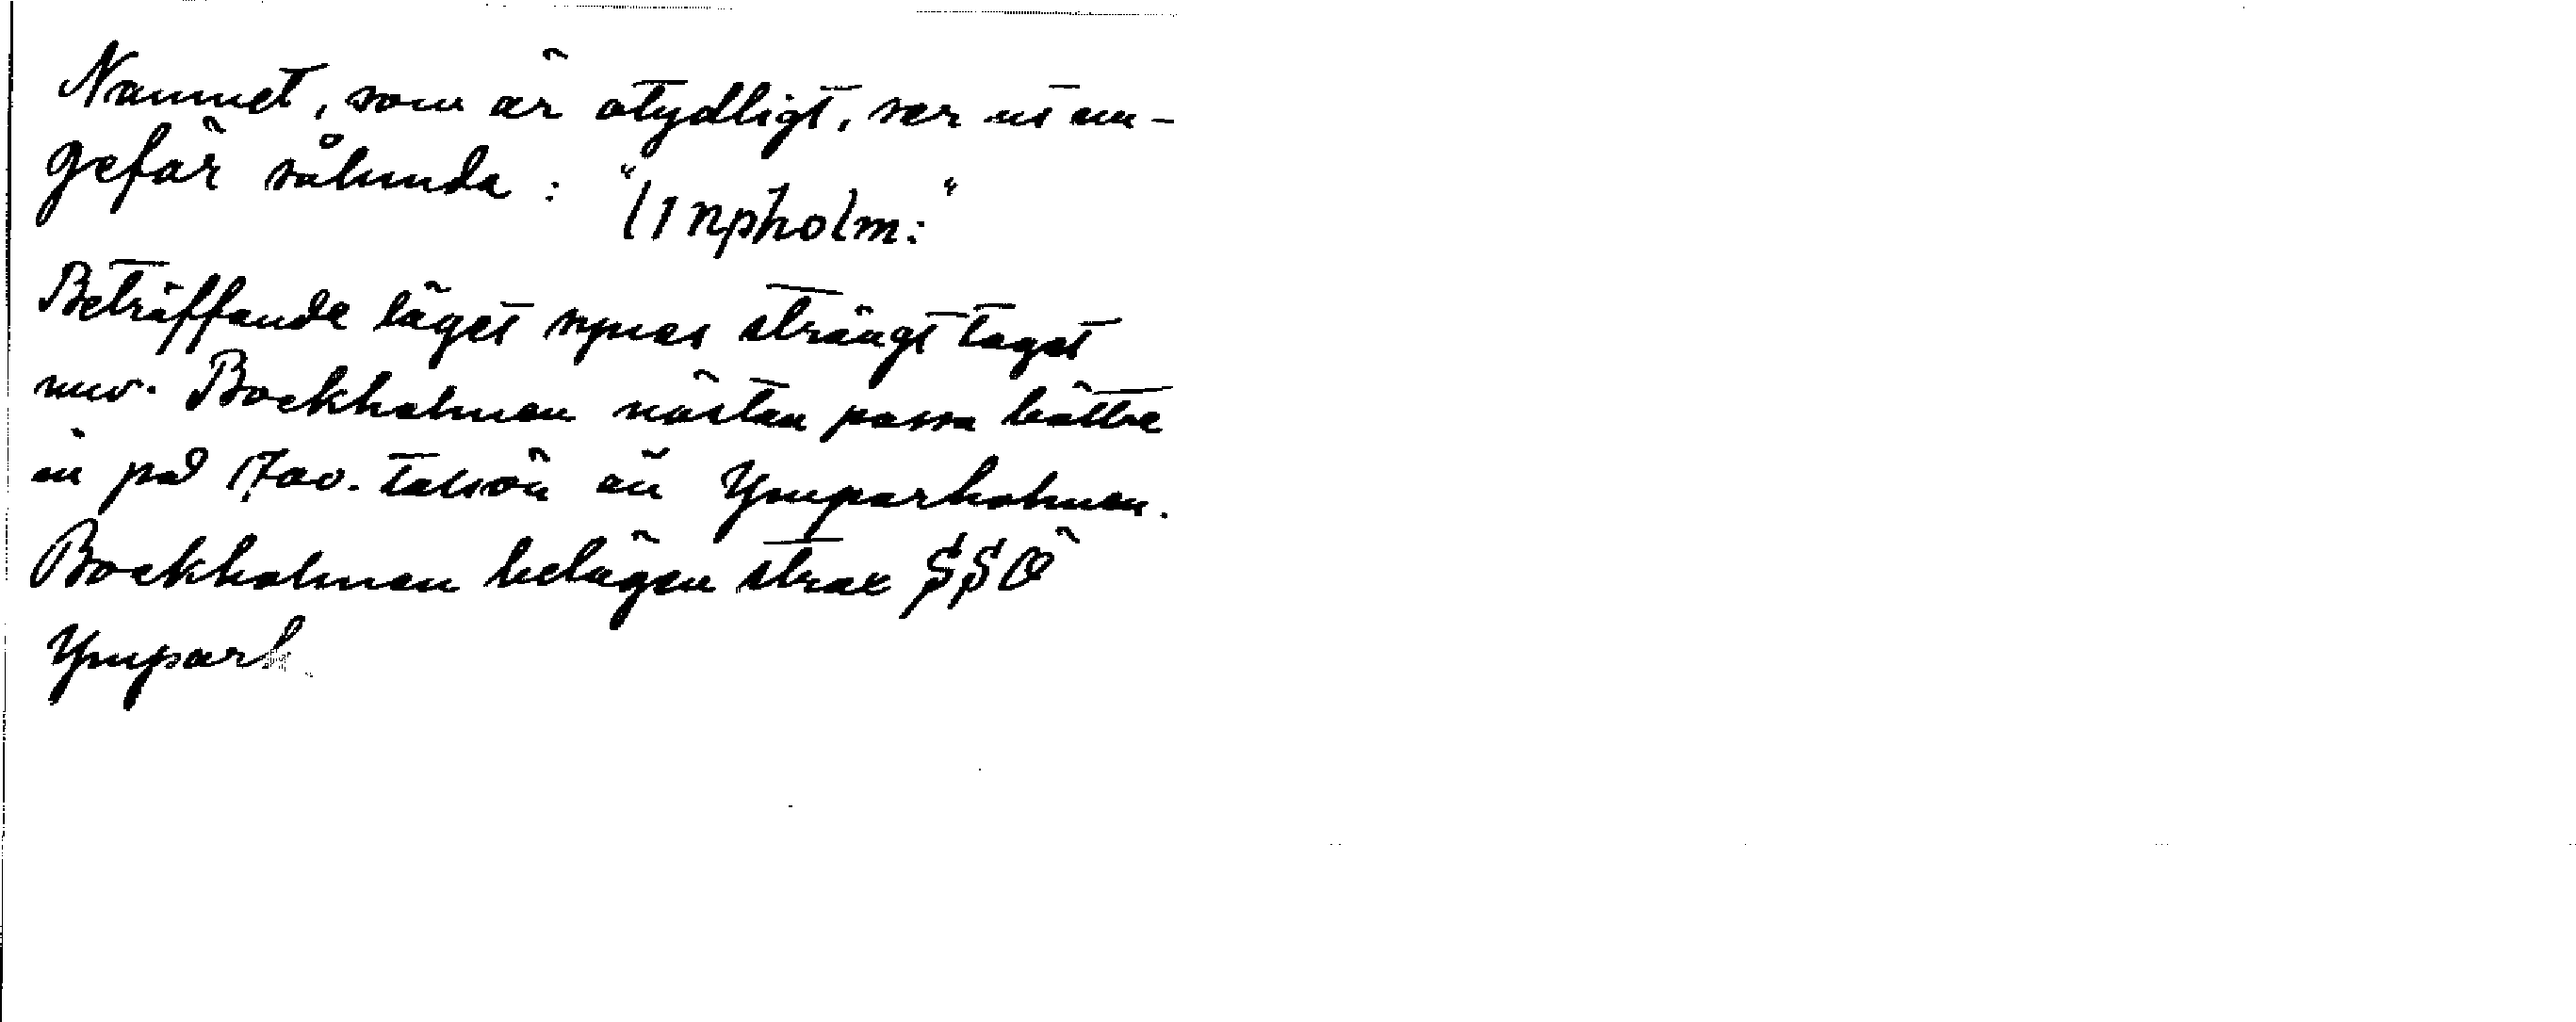 Namnet, som är otydligt, ser ut un-
gefär sålunda: "linpholm:"
Beträffande läget synes strängt taget
nuv. Bockholmen nästan passa bättre
in på 1700-talsön än Ymparholmen.
Bockholmen belägen strax SSO
Ymparh.